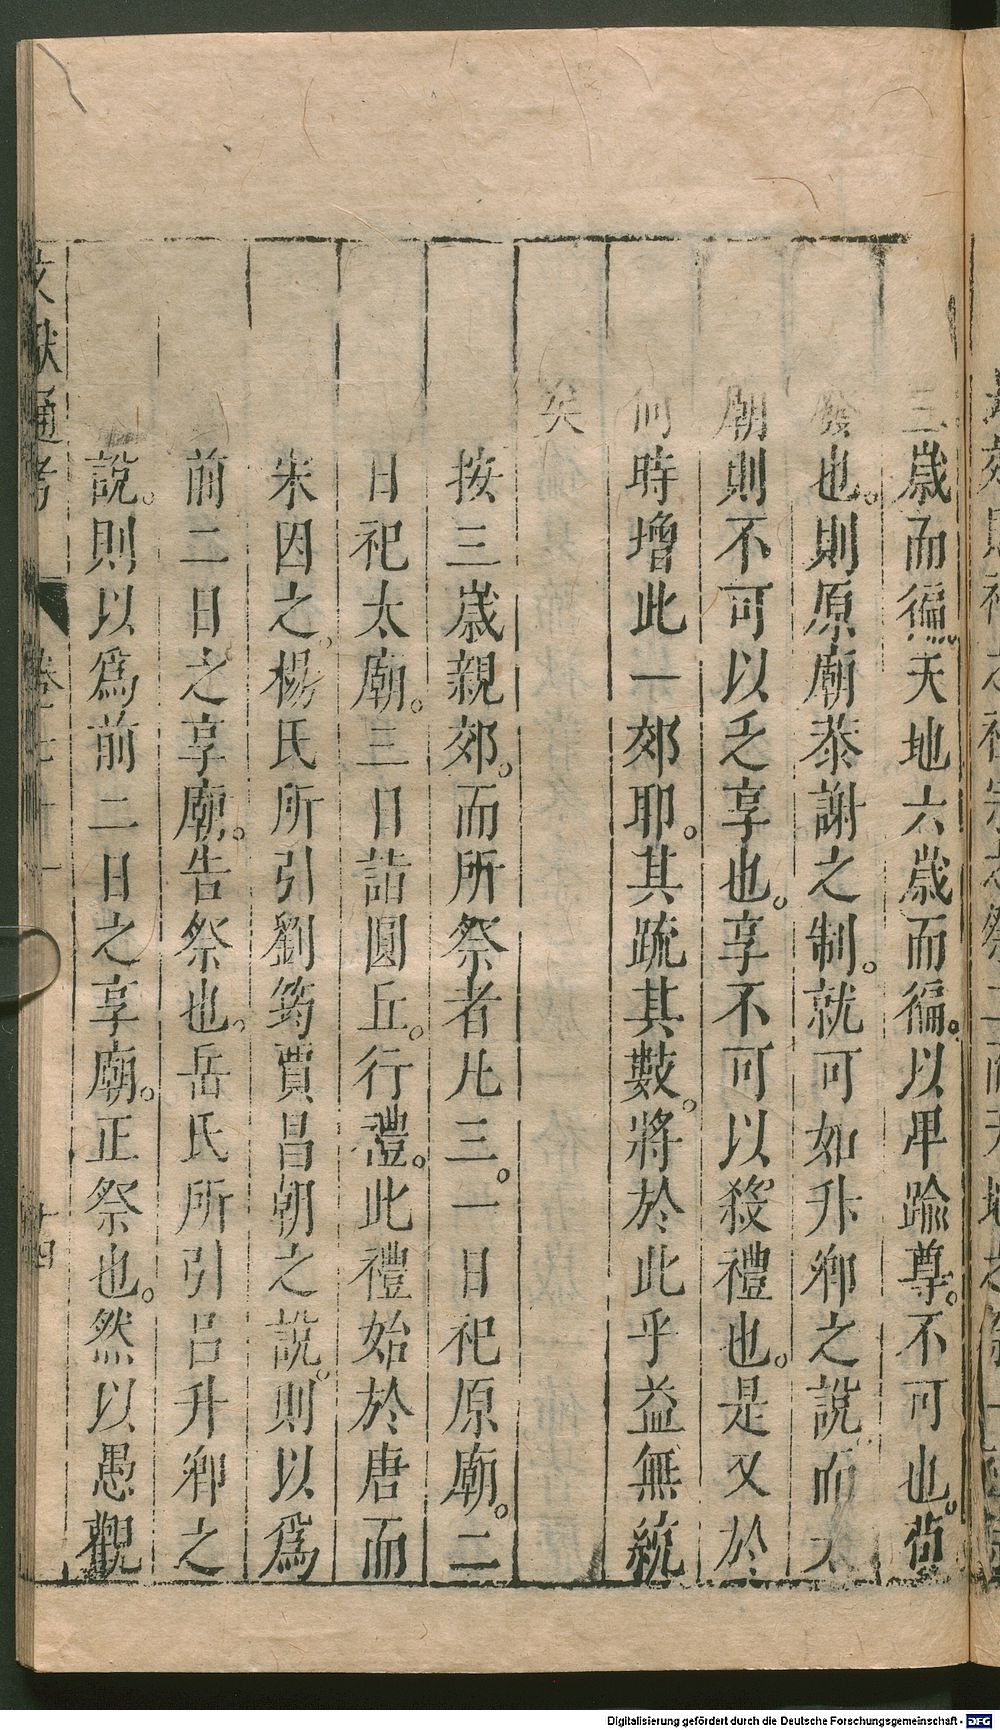 三歲而徧天地六歲而徧。以卑踰尊。不可也。苟
發也。則原廟恭謝之制。就可如升卿之說而太
廟則不可以乏享也。享不可以殺禮也。是又於
何時增此一郊耶。其疏其數。將於此乎益無統
矣
按三歲親郊。而所祭者凡三。一日祀原廟。二
日祀太廟。三日詣圓丘。行禮。此禮始於唐而
宋因之。楊氏所引劉筠賈昌朝之說。則以爲
前二日之享廟。告祭也。岳氏所引呂升卿之
說。則以爲前二日之享廟。正祭也。然以愚觀
文獻通考
卷七十一
十四
Digitalisierung gefördert durch die Deutsche Forschungsgemeinschaft - DFG